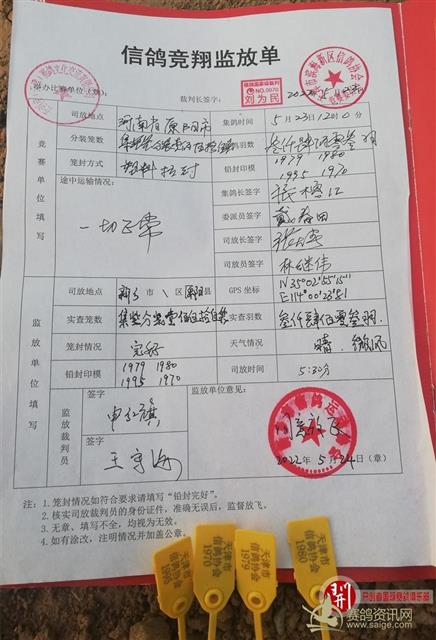 信鸽竞翔监放单
举办比赛单位(章):
裁判长签字:
信鸽国家级裁判
NO.0070
刘为民
天津市滨海新区信鸽协会
竞赛单位填写
司放地点 河南省原阳市 集鸽时间 5月23日12时0分
分装笼数
集鸽羽数 叁仟肆佰零叁羽
笼封方式 塑料扎封 铅封印模 1979 1980
1995 1970
途中运输情况:
一切正常
集鸽长签字
委派员签字 戴春田
司放长签字
司放员签字 林继伟
监放单位填写
司放地点 新乡市 区原阳县 GPS坐标 N35°02′55′15″
E114°00′23′81″
实查笼数
实查羽数 叁仟肆佰零叁羽
笼封情况 完好 天气情况 晴、微风
铅封印模 1979 1980
1995 1970
司放时间 5:30分
监放裁判员
签字 申红旗
签字 王守海
监放单位意见:
同意放飞
2022年5月24日(章)
注:1.笼封情况如符合要求请填写“铅封完好”。
2.核实司放裁判员的身份证件,准确无误后,监督放飞。
3.无章、填写不全,均视为无效。
4.如有涂改,注明情况并加盖公章。
天津市
信鸽协会
1995
天津市
信鸽协会
1970
天津市
信鸽协会
1979
天津市
信鸽协会
1980
开创者国际赛鸽俱乐部
赛鸽资讯网
www.saige.com